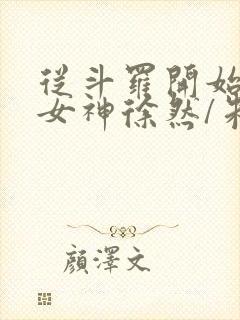 從斗羅開始
女神徐然/朱
顏澤文